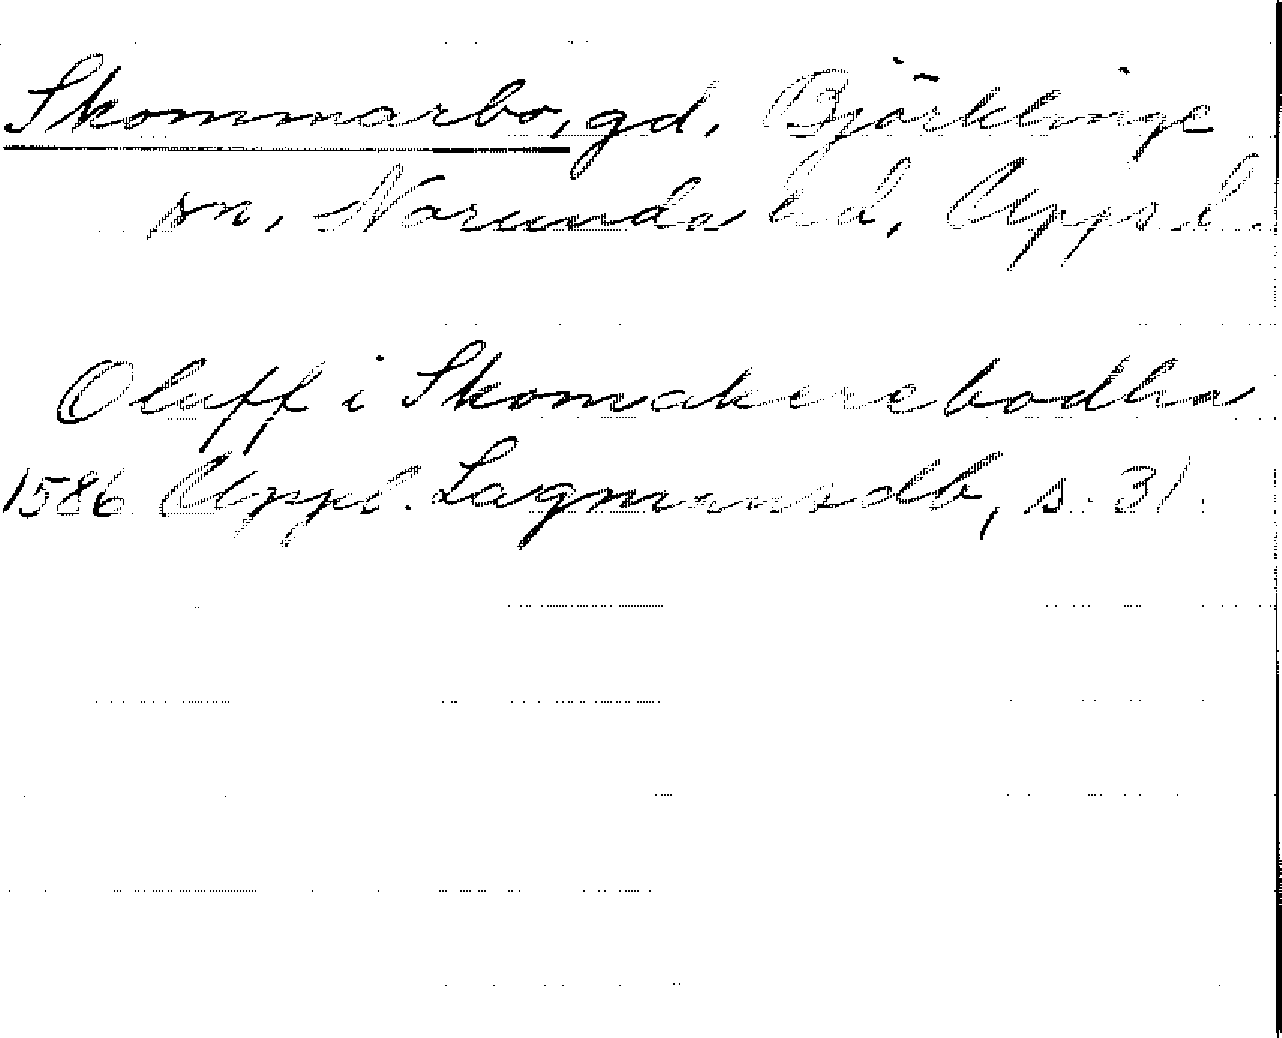 Skommarbo, gd. Björklinge
sn, Norunda hd, Upps l.
Oluff i Skomakerebodha
1586 Uppl. Lagmansdb, s. 31.